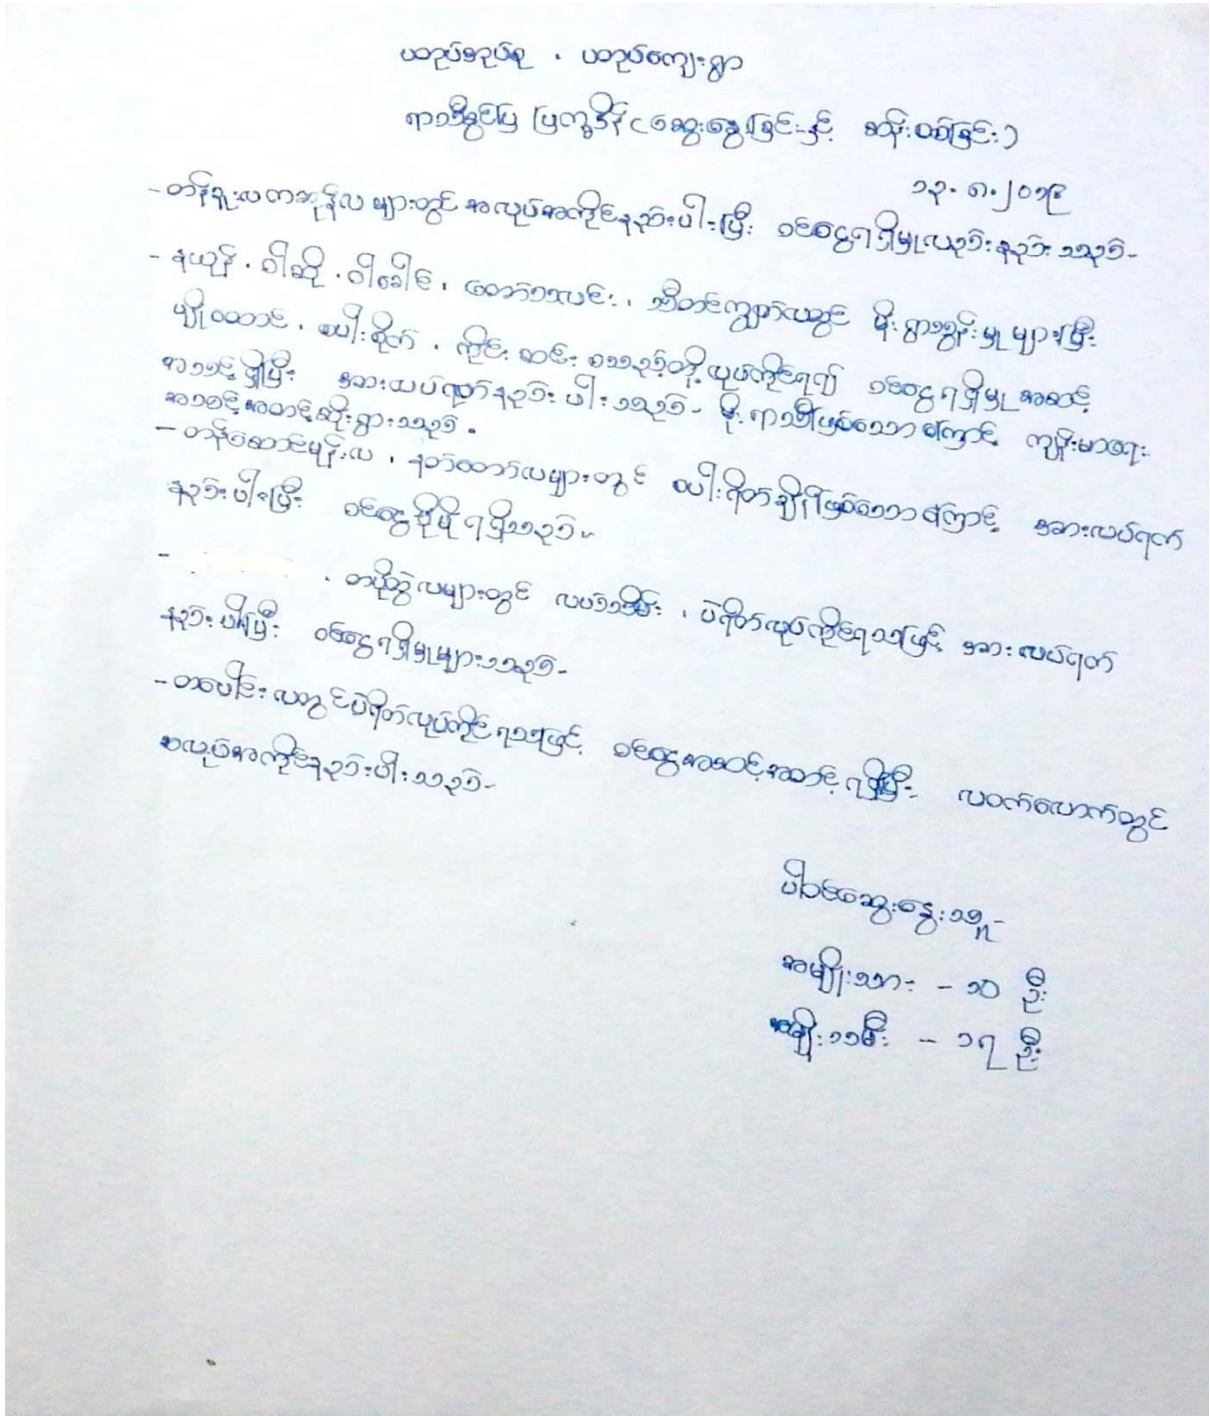 ယာဉ်အုပ်စု ၊ ယာဉ်ကျေးရွာ
ရာသီခွင်ပြ ပြက္ခဒိန် (ဆွေးနွေးခြင်းနှင့် ဆန်းစစ်ခြင်း)
၁၃.၈.၂၀၁၉
- တန်ခူးလ ကဆုန်လ များတွင် အလုပ်အကိုင်နည်းပါးပြီး ဝင်ငွေရရှိမှုလည်း နည်းသည်-
- နယုန် ၊ ဝါဆို ၊ ဝါခေါင် ၊ တော်သလင်း ၊ သီတင်းကျွတ်လတွင် မိုးရွာသွန်းမှု များပြီး
ပျိုးထောင် ၊ စပါးစိုက် ၊ ကိုင်းဆင်း စသည့်တို့ လုပ်ကိုင်ရ၍ ဝင်ငွေရရှိမှု အဆင့်
အသင့်ရှိပြီး အားလပ်ရက်နည်းပါးသည်- မိုးရာသီဖြစ်သောကြောင့် ကျန်းမာရေး
အသင့်အတင့်ဆိုးရွားသည်။
- တန်ဆောင်မုန်းလ ၊ နတ်တော်လများတွင် စပါးရိတ်ချိန်ဖြစ်သောကြောင့် အားလပ်ရက်
နည်းပါးပြီး ဝင်ငွေပိုမိုရရှိသည်။
- ၊ တပို့တွဲလများတွင် လယ်သိမ်း ၊ ပဲရိတ်လုပ်ကိုင်ရသဖြင့် အားလပ်ရက်
နည်းပါးပြီး ဝင်ငွေရရှိမှုများသည်-
- တပေါင်းလတွင် ပဲရိတ်လုပ်ကိုင်ရသဖြင့် ဝင်ငွေအသင့်အတင့်ရရှိပြီး လဝက်လောက်တွင်
အလုပ်အကိုင်နည်းပါးသည်-
ပါဝင်ဆွေးနွေးသူ-
အမျိုးသား - ၁၀ ဦး
အမျိုးသမီး - ၁၇ ဦး